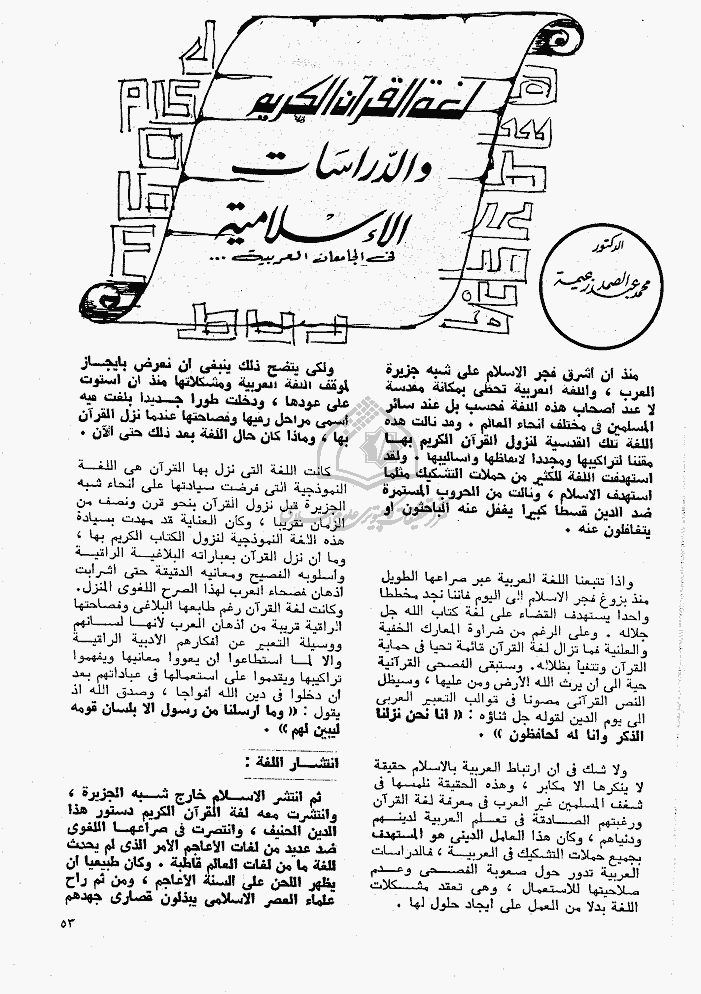 لغة القرآن الكريم
والدراسات
الإسلامية
فى الجامعات العربية ...
الدكتور
محمد عبد الصمد زعيمة
منذ ان اشرق فجر الاسلام على شبه جزيرة
العرب ، واللغه العربية تحظى بمكانة مقدسة
لا عند اصحاب هذه اللغة فحسب بل عند سائر
المسلمين فى مختلف انحاء العالم . وقد نالت هذه
اللغة تلك القدسية لنزول القرآن الكريم بهـا
مقننا لتراكيبها ومجددا لالفاظها واساليبها . ولقد
استهدفت اللغة للكثير من حملات التشكيك مثلما
استهدف الاسلام ، ونالت من الحروب المستمرة
ضد الدين قسطا كبيرا يغفل عنه الباحثون او
يتغافلون عنه .
واذا تتبعنا اللغة العربية عبر صراعها الطويل
منذ بزوغ فجر الاسلام الى اليوم فاننا نجد مخططا
واحدا يستهدف القضاء على لغة كتاب الله جل
جلاله . وعلى الرغم من ضراوة المعارك الخفية
والعلنية فما تزال لغة القرآن قائمة تحيا فى حماية
القرآن وتتفيأ بظلاله. وستبقى الفصحى القرآنية
حية الى ان يرث الله الأرض ومن عليها ، وسيظل
النص القرآنى مصونا فى قوالب التعبير العربى
الى يوم الدين لقوله جل ثناؤه : « انا نحن نزلنا
الذكر وانا له لحافظون » .
ولا شك فى ان ارتباط العربية بالاسلام حقيقة
لا ينكرها الا مكابر ، وهذه الحقيقة نلمسها فى
شغف المسلمين غير العرب فى معرفة لغة القرآن
ورغبتهم الصـادقة فى تعلم العربية لدينهم
ودنياهم ، وكان هذا العامل الدينى هو المستهدف
بجميع حملات التشكيك فى العربيـــة ، فالدراسات
العربية تدور حول صعوبة الفصــحى وعــدم
صلاحيتها للاستعمال ، وهى تعقد مشــكلات
اللغة بدلا من العمل على ايجاد حلول لها .
ولكى يتضح ذلك ينبغى ان نعرض بايجاز
لموقف اللغة العربية ومشكلاتها منذ ان استوت
على عودها ، ودخلت طورا جديدا بلغت فيه
أسمى مراحل رقيها وفصاحتها عندما نزل القرآن
بها ، وماذا كان حال اللغة بعد ذلك حتى الآن .
كانت اللغة التى نزل بها القرآن هى اللغــة
النموذجية التى فرضت سيادتها على أنحاء شبه
الجزيرة قبل نزول القرآن بنحو قرن ونصف من
الزمان تقريبا ، وكأن العناية قد مهدت بسيادة
هذه اللغة النموذجية لنزول الكتاب الكريم بها ،
وما ان نزل القرآن بعباراته البلاغيــة الراقيــة
وأسلوبه الفصيح ومعانيه الدقيقة حتى اشرأبت
اذهان فصحاء العرب لهذا الصرح اللغوى المنزل.
وكانت لغة القرآن رغم طابعها البلاغى وفصاحتها
الراقية قريبة من اذهان العرب لأنهــا لســانهم
ووسيلة التعبير عن أفكارهم الأدبية الراقيــة
والا لمــا استطاعوا ان يعووا معانيها ويفهموا
تراكيبها ويقدموا على استعمالها فى عباداتهم بعد
ان دخلوا فى دين الله افواجا ، وصدق الله اذ
يقول : « وما ارسلنا من رسول الا بلسان قومه
ليبين لهم » .
انتشــار اللغة :
ثم انتشر الاســلام خارج شــبه الجزيرة ،
وانتشرت معه لغة القرآن الكريم دستور هذا
الدين الحنيف ، وانتصرت فى صراعهــا اللغوى
ضد عديد من لغات الأعاجم الأمر الذى لم يحدث
للغة ما من لغات العالم قاطبة . وكان طبيعيا ان
يظهر اللحن على السنة الأعاجم ، ومن ثم راح
علماء العصر الاسلامى يبذلون قصارى جهدهم
٥٣